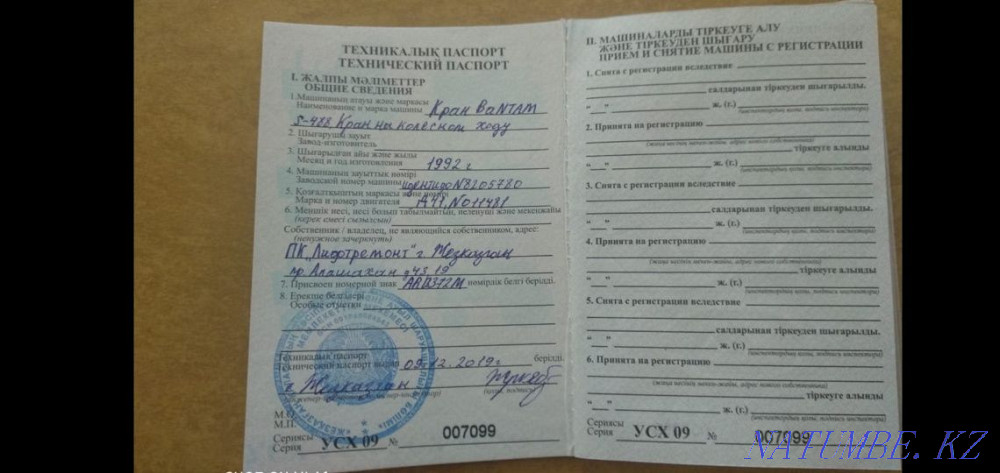 ТЕХНИКАЛЫҚ ПАСПОРТ
ТЕХНИЧЕСКИЙ ПАСПОРТ
I. ЖАЛПЫ МӘЛІМЕТТЕР
ОБЩИЕ СВЕДЕНИЯ
1.Машинаның атауы және маркасы
Наименование и марка машины Кран BaNTAM
S-488, Кран на колесном ходу
2. Шығарушы зауыт
Завод-изготовитель
3. Шығарылған айы және жылы
Месяц и год изготовления 1992 г
4. Машинаның зауыттық нөмірі
Заводской номер машины N8205780
5. Қозғалтқыштың маркасы және нөмірі
Марка и номер двигателя N011481
6. Меншік иесі, иесі болып табылмайтын, иеленуші және мекенжайы
(керек емесі сызылсын)
Собственник / владелец, не являющийся собственником, адрес:
(ненужное зачеркнуть)
ПК "Лифтремонт" г. Жезказган
пр. Алашахан д 43, 19
7. Присвоен номерной знак ARB372M нөмірлік белгі берілді.
8. Ерекше белгілері
Особые отметки
Техникалық паспорт
Технический паспорт выдан 09.12.2019г берілді.
г. Жезказган
М.О.
М.П.
Сериясы
Серия УСХ 09 № 007099
II. МАШИНАЛАРДЫ ТІРКЕУГЕ АЛУ
ЖӘНЕ ТІРКЕУДЕН ШЫҒАРУ
ПРИЕМ И СНЯТИЕ МАШИНЫ С РЕГИСТРАЦИИ
1. Снята с регистрации вследствие
салдарынан тіркеуден шығарылды.
"__" ж. (г.)
(инспектордың қолы, подпись инспектора)
2. Принята на регистрацию
(жаңа иесінің мекен-жайы, адрес нового собственника)
тіркеуге алынды
"__" ж. (г.)
(инспектордың қолы, подпись инспектора)
3. Снята с регистрации вследствие
салдарынан тіркеуден шығарылды.
"__" ж. (г.)
(инспектордың қолы, подпись инспектора)
4. Принята на регистрацию
(жаңа иесінің мекен-жайы, адрес нового собственника)
тіркеуге алынды
"__" ж. (г.)
(инспектордың қолы, подпись инспектора)
5. Снята с регистрации вследствие
салдарынан тіркеуден шығарылды.
"__" ж. (г.)
(инспектордың қолы, подпись инспектора)
6. Принята на регистрацию
(жаңа иесінің мекен-жайы, адрес нового собственника)
тіркеуге алынды
"__" ж. (г.)
(инспектордың қолы, подпись инспектора)
Сериясы
Серия УСХ 09 № 007099
NATUMBE.KZ